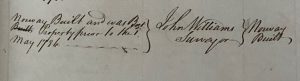 Norway Built and was Brit
Built Property prior to the 1
May 1786
John Williams
Surveyor
Norway
Built